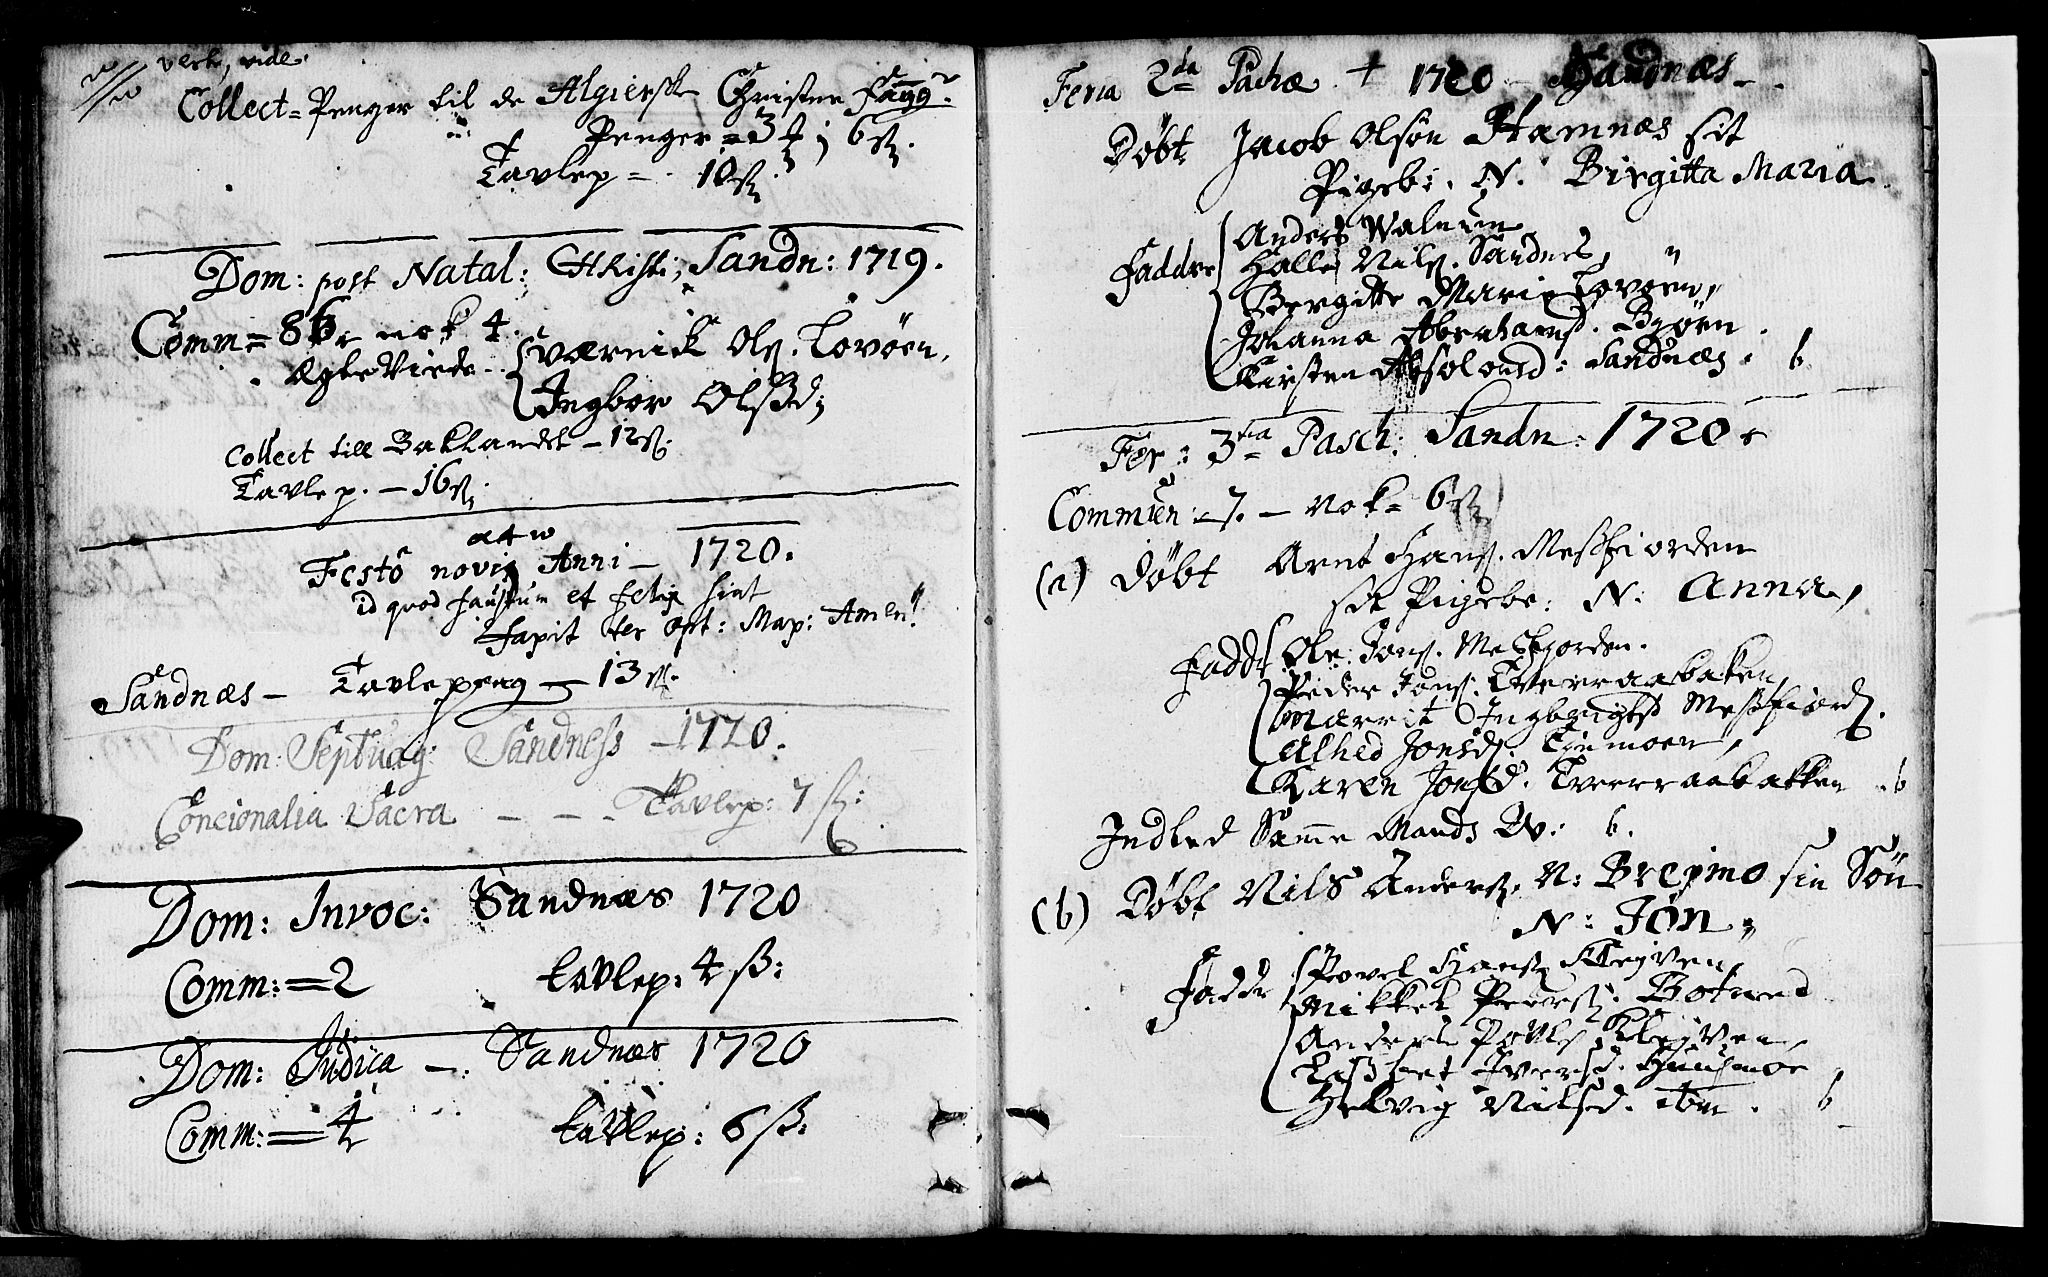 verte, vide.
Collect = Penger til de Algiersk Christne Fang:
Penger = 3 ; 6 ß.
Tavlep = . 10 ß.
Dom: post Natal: Christi; Sandn: 1719.
Comm = 8 nok 4.
Ægte Viede .. Værnick Ols. Lovöen,
Ingbor Olsd;
Collect till Baklandet – 12 ß.
Tavlep. – 16 ß.
Festo novi Anni – 1720.
id quod faustum et felix sint
faxit ter Opt: Max: Amen!
Sandnæs – Tavlepeng – 13 ß.
Dom: Septuag: Sandness – 1720.
Concionalia Sacra – – – Tavlep: 7 ß:
Dom: Invoc: Sandnæs 1720
Comm: = 2 tavlep: 4 ß:
Dom: Judica –. Sandnæs 1720
Comm: = 4 tavlep: 6 ß:
Feria 2da Pachæ 1720 – Sandnæs –
Döbt Jacob Olsön Hamnæs sit
Pigeb: N. Birgitta Maria
Faddre Anders Walnum
Halle Nils. Sandnes,
Bergitte Marie Lovöen,
Johanna Abrahamsd. Björen.
Kirsten Absolonsd: Sandnæs. b.
Fer: 3tia Pasch: Sandn: 1720
Commun: 7. – nok = 6
(a) Döbt Arnt Hans. Messfiorden
sit Pigebr: N: Anna,
Fadd: Ole Jons. Messfjorden.
Peder Jons. Tverraabaken,
Marrit Ingbrigtsd Messfiord.
Alhed Jonsd.
Karen Jonsd. Tverraabakken . b
Indled Samme Mands W: b.
(b) Döbt Nils Anders. N: Brejmo sin Sön
N: Jon,
Fadd: Povel Hans. Klejven,
Mikkel Peders. Botned
Anders Povls. Klejven,
Lisbet Iversd. Huusmoe,
Helvig Nilsd. ibm. b